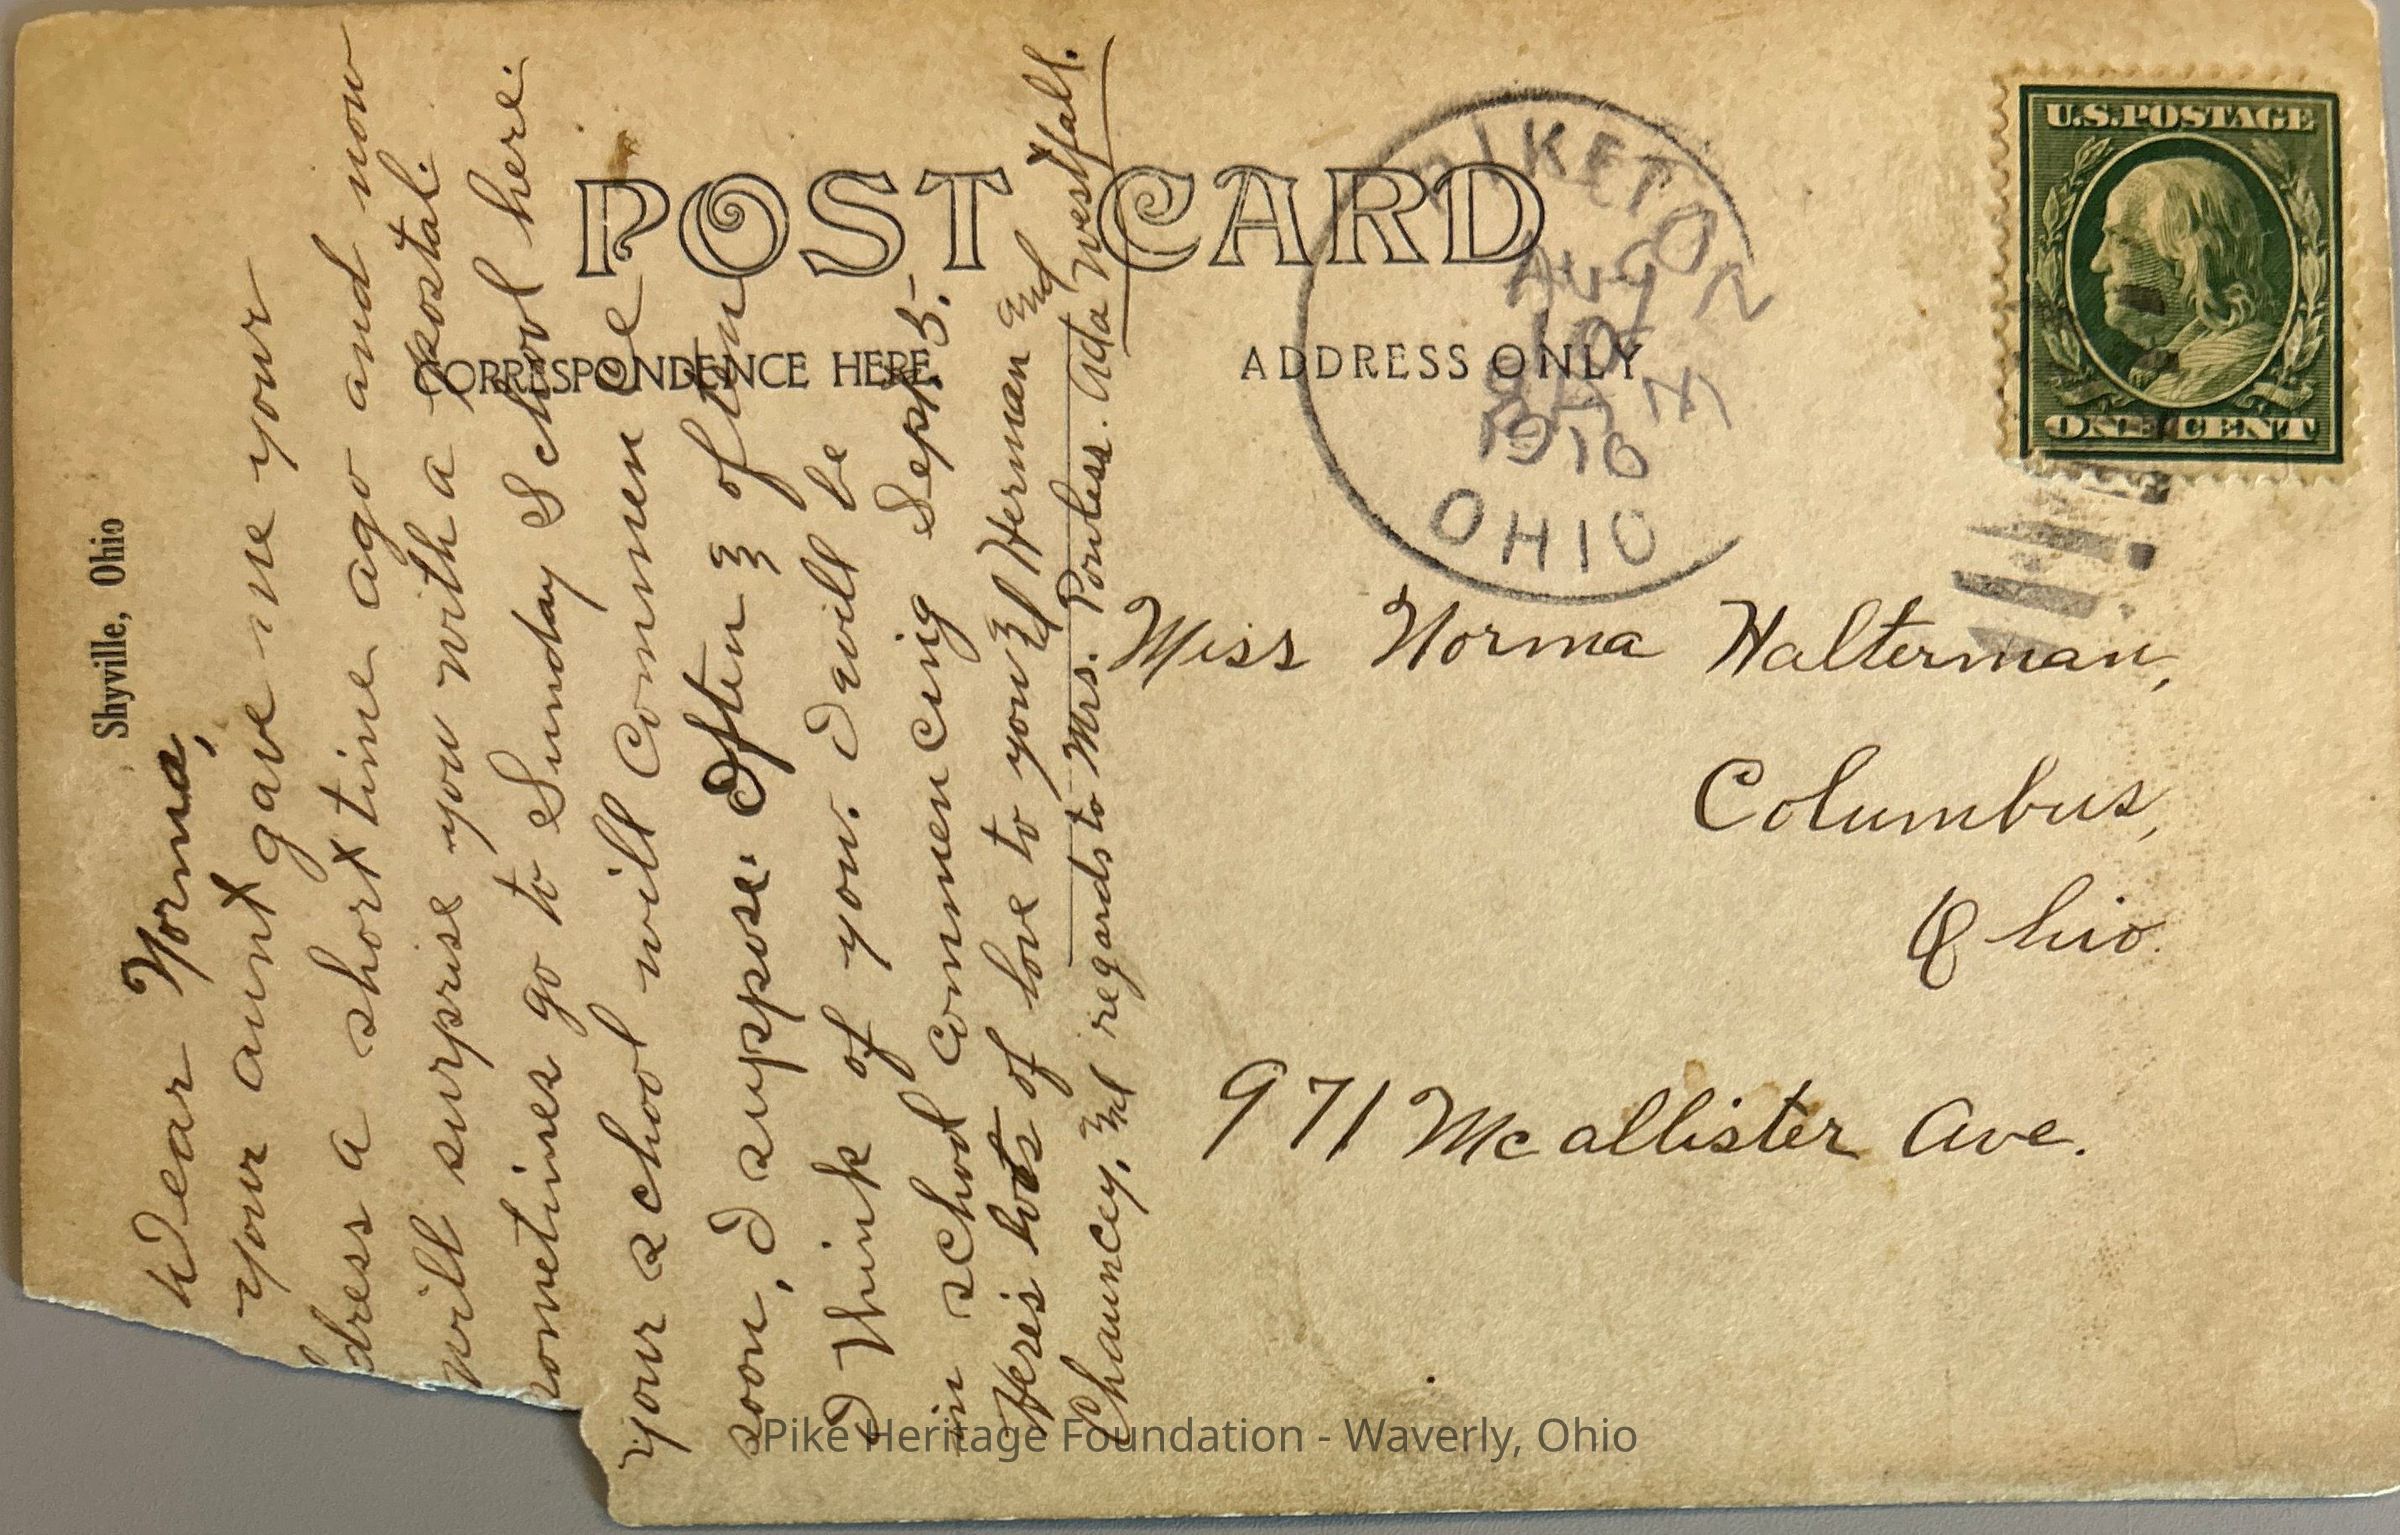 POST CARD
CORRESPONDENCE HERE
ADDRESS ONLY
Shyville, Ohio
Dear Norma,
your aunt gave me your
dress a short time ago and now
will surprise you with a postal.
sometimes go to Sunday School here.
your school will commence
soon, I suppose. Often & often
I think of you. I will be
in school commencing Sept. 5.
Here's lots of love to you & Herman and
Chauncey, & regards to Mrs. Powless. Ada Westfall.
PIKETON
AUG
10
8 AM
1910
OHIO
U.S. POSTAGE
ONE CENT
Miss Norma Halterman,
Columbus,
Ohio.
971 McAllister Ave.
Pike Heritage Foundation - Waverly, Ohio